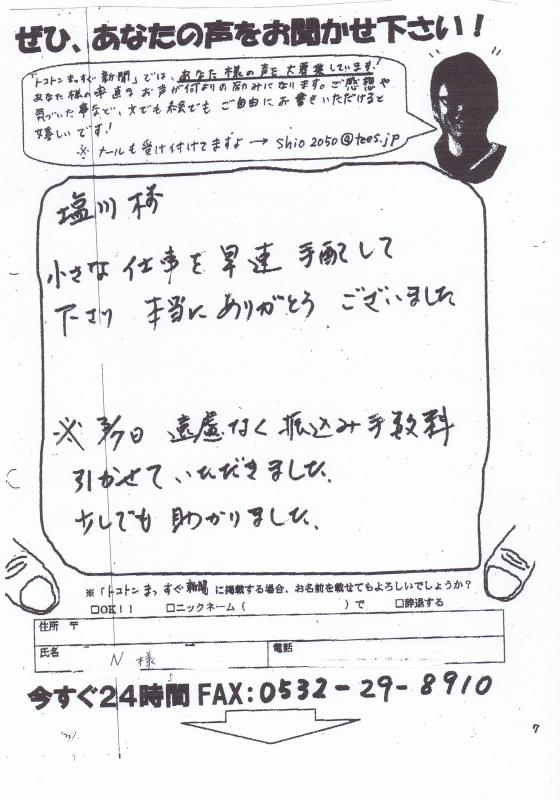 ぜひ、あなたの声をお聞かせ下さい！
「トコトンまっすぐ新聞」では、あなた様の声を大募集しています！
あなた様の率直なお声が何よりの励みになります。ご感想や
気づいた事など、文でも絵でもご自由にお書きいただけると
嬉しいです！
※メールも受け付けてますよ → Shio2050@tees.jp
塩川様
小さな仕事を早速手配して
下さり 本当にありがとう ございました
※ 今日 遠慮なく振込み手数料
引かせていただきました。
少しでも助かりました。
※「トコトンまっすぐ新聞」に掲載する場合、お名前を載せてもよろしいでしょうか？
□OK！！ □ニックネーム（ ）で □辞退する
住所 〒
氏名 N 様 電話
今すぐ24時間 FAX：0532-29-8910
7